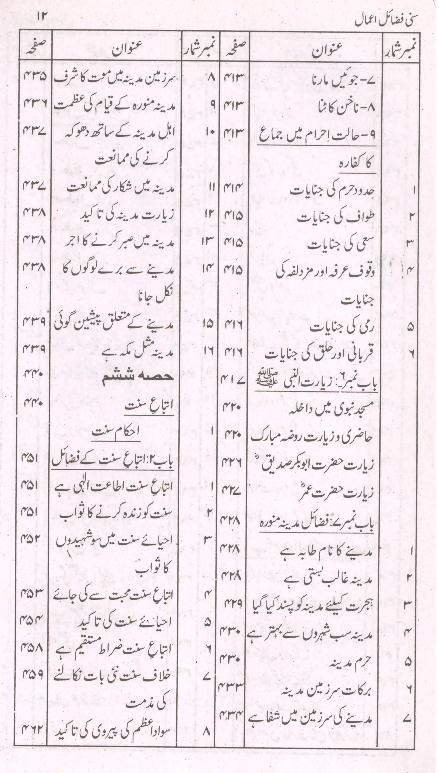 سنی فضائل اعمال ۱۲
نمبر شمار عنوان صفحہ
۷- جوئیں مارنا ۴۱۳
۸- ناخن کاٹنا ۴۱۳
۹- حالت احرام میں جماع ۴۱۳
کا کفارہ
۱ حدود حرم کی جنایات ۴۱۴
۲ طواف کی جنایات ۴۱۵
۳ سعی کی جنایات ۴۱۵
۴ وقوف عرفہ اور مزدلفہ کی ۴۱۵
جنایات
۵ رمی کی جنایات ۴۱۶
۶ قربانی اور حلق کی جنایات ۴۱۶
باب نمبر ۶: زیارت النبی ﷺ ۴۱۷
مسجد نبوی میں داخلہ ۴۲۰
حاضری و زیارت روضہ مبارک ۴۲۰
زیارت حضرت ابوبکر صدیقؓ ۴۲۶
زیارت حضرت عمرؓ ۴۲۷
باب نمبر ۷: فضائل مدینہ منورہ ۴۲۸
۱ مدینے کا نام طابہ ہے ۴۲۸
۲ مدینہ غالب بستی ہے ۴۲۸
۳ ہجرت کیلئے مدینہ کو پسند کیا گیا ۴۲۹
۴ مدینہ سب شہروں سے بہتر ہے ۴۳۰
۵ حرم مدینہ ۴۳۰
۶ برکات سرزمین مدینہ ۴۳۳
۷ مدینے کی سرزمین میں شفا ہے ۴۳۴
نمبر شمار عنوان صفحہ
۸ سرزمین مدینہ میں موت کا شرف ۴۳۵
۹ مدینہ منورہ کے قیام کی عظمت ۴۳۶
۱۰ اہل مدینہ کے ساتھ دھوکہ ۴۳۷
کرنے کی ممانعت
۱۱ مدینہ میں شکار کی ممانعت ۴۳۷
۱۲ زیارت مدینہ کی تاکید ۴۳۸
۱۳ مدینہ میں صبر کرنے کا اجر ۴۳۸
۱۴ مدینے سے برے لوگوں کا ۴۳۸
نکل جانا
۱۵ مدینے کے متعلق پیشین گوئی ۴۳۹
۱۶ مدینہ مثل مکہ ہے ۴۳۹
حصہ ششم ۴۴۰
اتباع سنت ۴۴۰
۱ احکام سنت
باب ۲: اتباع سنت کے فضائل ۴۵۱
۱ اتباع سنت اطاعت الٰہی ہے ۴۵۱
۲ سنت کو زندہ کرنے کا ثواب ۴۵۱
۳ احیائے سنت میں سو شہیدوں ۴۵۲
کا ثواب
۴ اتباع سنت محبت سے کی جائے ۴۵۳
۵ احیائے سنت کی تاکید ۴۵۴
۶ اتباع سنت صراط مستقیم ہے ۴۵۸
۷ خلاف سنت نئی بات نکالنے ۴۵۹
کی مذمت
۸ سواد اعظم کی پیروی کی تاکید ۴۶۲